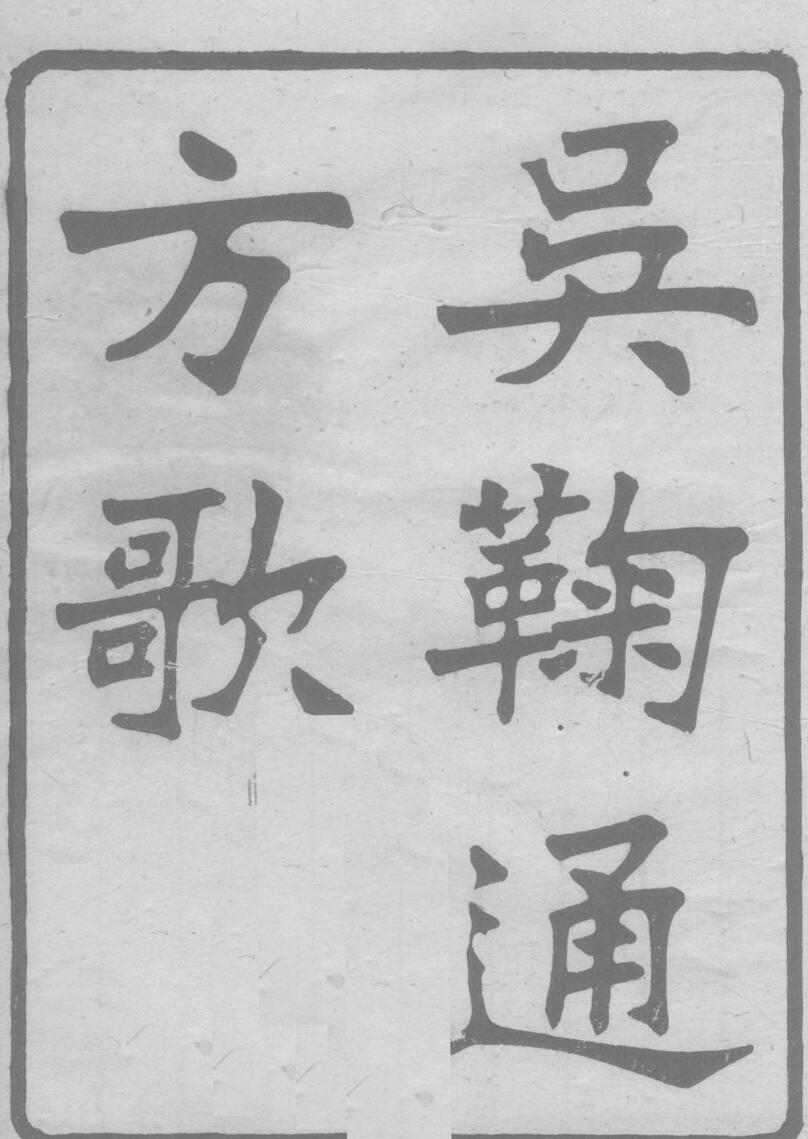 吳鞠通
方歌